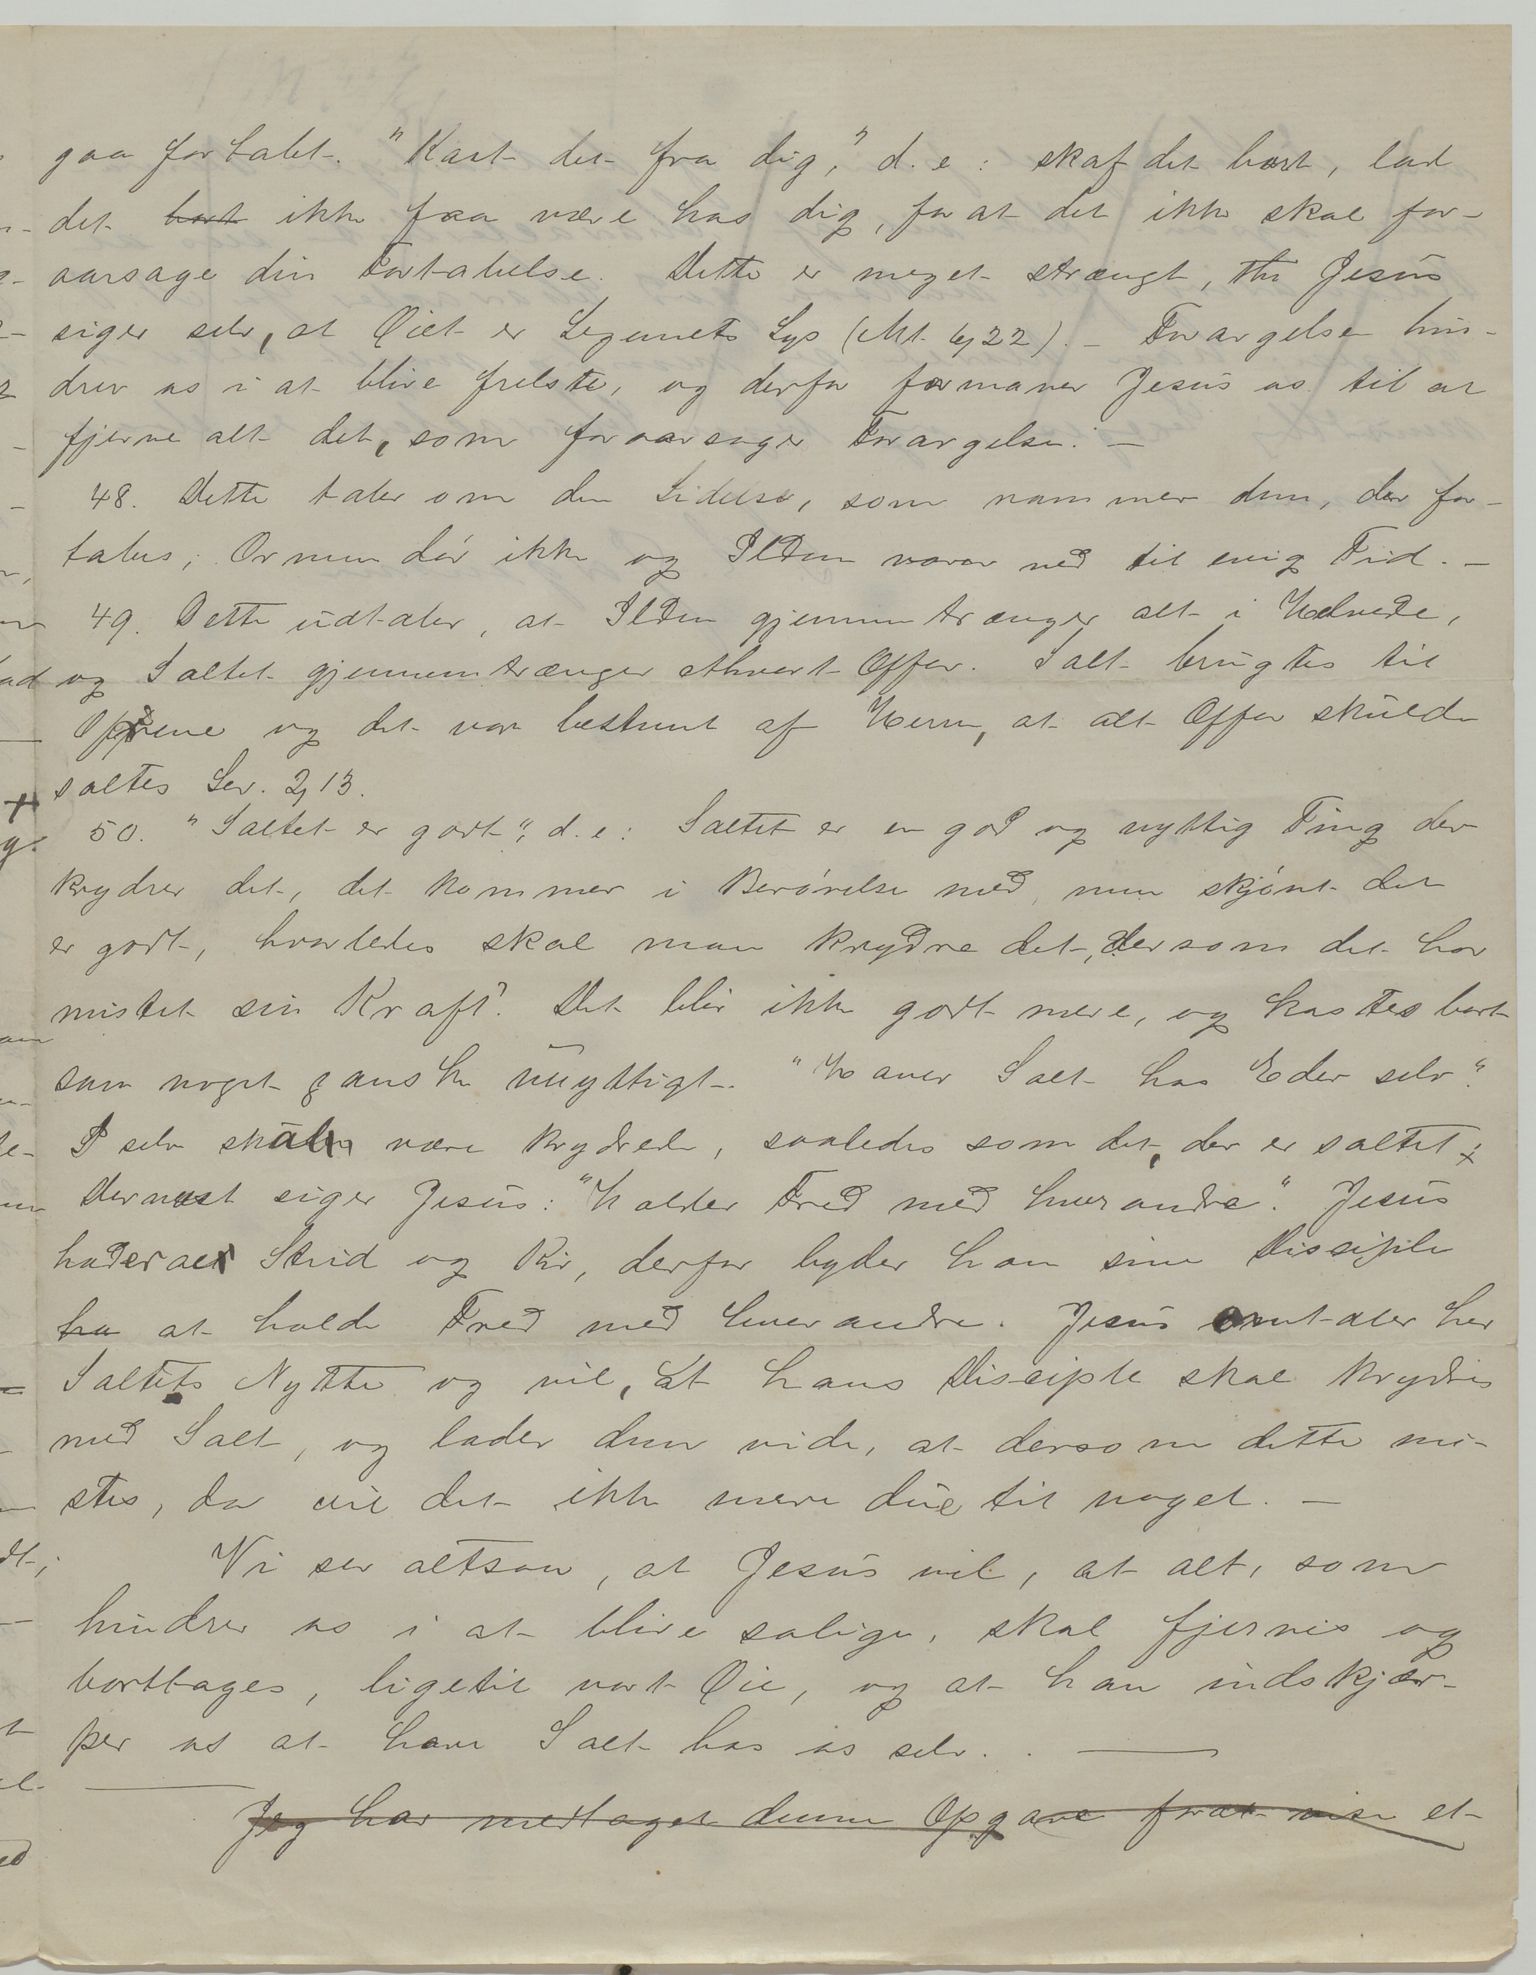 gaa fortabt. "Kast det fra dig," d.e: skaf det bort, lad
det ~~bort~~ ikke faa være hos dig, for at det ikke skal for-
aarsage din Fortabelse. Dette er meget strængt, thi Jesus
siger selv, at Øiet er Legemets Lys (Mt. 6,22). - Forargelsen hin-
drer os i at blive frelste, og derfor formaner Jesus os til at
fjerne alt det, som foraarsager Forargelse. -
48. Dette taler om den Lidelse, som rammer dem, der for-
tabes; Ormen dør ikke og Ilden varer ved til evig Tid. -
49. Dette udtaler, at Ilden gjennemtrænger alt i Helvede,
og Saltet gjennemtrænger ethvert Offer. Salt brugtes til
Ofrene og det var bestemt af Herren, at alt Offer skulde
saltes Lev. 2,13.
50. "Saltet er godt", d.e: Saltet er en god og nyttig Ting der
krydrer det, det kommer i Berørelse med, men skjønt det
er godt, hvorledes skal man krydre det, dersom det har
mistet sin Kraft? Det blir ikke godt mere, og kastes bort
som noget ganske unyttigt. "Haver Salt hos Eder selv".
I selv skulle være krydrede, saaledes som det, der er saltet;
Dernæst siger Jesus: "Holder Fred med hverandre". Jesus
hader al Strid og Kiv, derfor byder han sine Disciple
~~ha~~ at holde Fred med hverandre. Jesus omtaler her
Saltets Nytte og vil, at hans Disciple skal krydres
med Salt, og lader dem vide, at dersom dette mi-
stes, da vil det ikke mere due til noget. -
Vi ser altsaa, at Jesus vil, at alt, som
hindrer os i at blive salige, skal fjernes og
borttages, ligetil vort Øie, og at han indskjær-
per os at have Salt hos os selv. -
~~Jeg har medtaget denne Opgave forat vise et~~